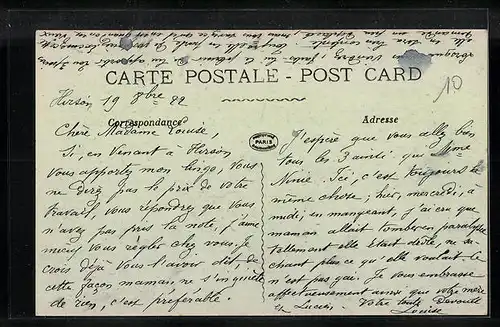 CARTE POSTALE - POST CARD
10
Hirson 19 8bre 22
Correspondance
Chère Madame Louise,
Si, en venant à Hirson
vous apportez mon linge, vous
ne direz pas le prix de votre
travail, vous répondrez que vous
n'avez pas pris la note, j'aime
mieux vous régler chez vous, je
crois déjà vous l'avoir dit, de
cette façon maman ne s'inquiète
de rien, c'est préférable.
PARIS
Adresse
J'espère que vous allez bien
tous les 3 ainsi que Mme
Ninie. Ici, c'est toujours la
même chose; hier, mercredi, à
midi, en mangeant, j'ai cru que
maman allait tomber en paralysie
tellement elle était drôle, ne sa-
chant plus ce qu'elle voulait. Ce
n'est pas gai. Je vous embrasse
affectueusement ainsi que votre mère
et Lucien. Votre toute dévouée
Louise